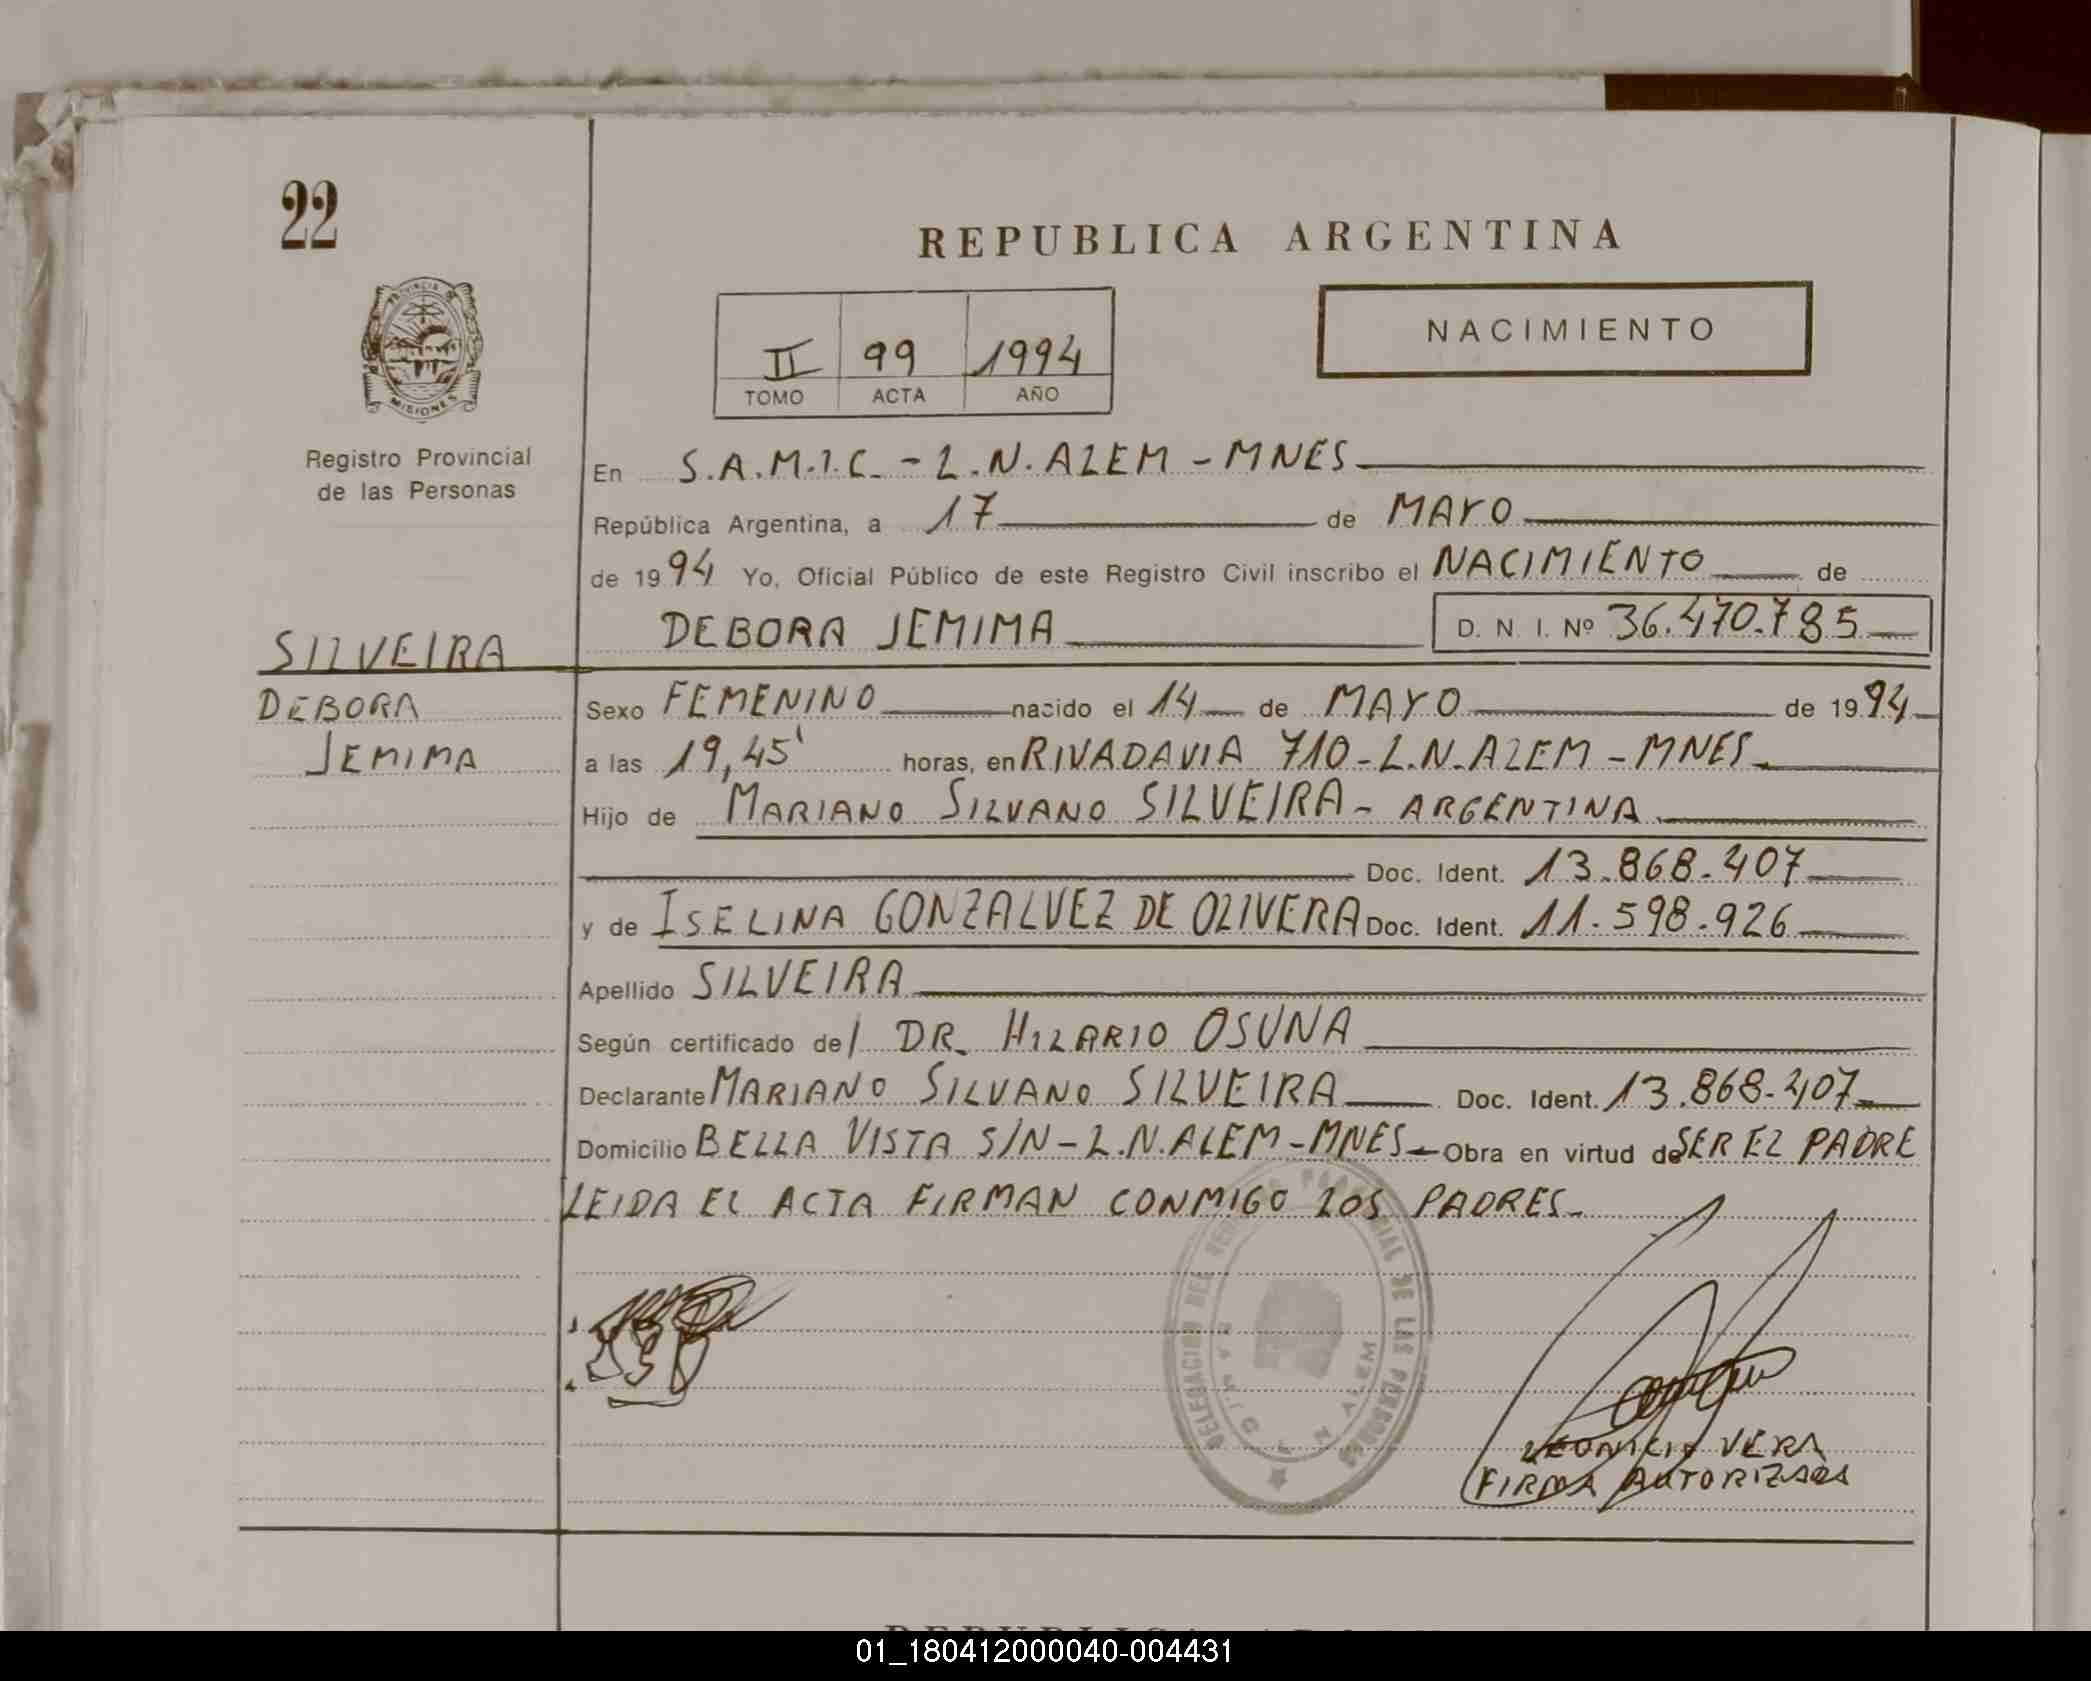 22
REPUBLICA ARGENTINA
NACIMIENTO
II 99 1994
TOMO ACTA AÑO
PROVINCIA DE
MISIONES
Registro Provincial
de las Personas
En S.A.M.I.C. - L.N. ALEM - MNES
República Argentina, a 17 de MAYO
de 1994 Yo, Oficial Público de este Registro Civil inscribo el NACIMIENTO de
DEBORA JEMIMA D. N. I. Nº 36.470.785
SILVEIRA
DEBORA
JEMIMA
Sexo FEMENINO nacido el 14 de MAYO de 1994
a las 19,45' horas, en RIVADAVIA 710 - L.N. ALEM - MNES
Hijo de MARIANO SILVANO SILVEIRA - ARGENTINA
Doc. Ident. 13.868.407
y de ISELINA GONZALVEZ DE OLIVERA Doc. Ident. 11.598.926
Apellido SILVEIRA
Según certificado del DR. HILARIO OSUNA
Declarante MARIANO SILVANO SILVEIRA Doc. Ident. 13.868.407
Domicilio BELLA VISTA S/N - L.N. ALEM - MNES - Obra en virtud de SER EL PADRE
LEIDA EL ACTA FIRMAN CONMIGO LOS PADRES.
DELEGACION DEL REGISTRO PROVINCIAL DE LAS PERSONAS
L N ALEM
LEONICIO VERA
FIRMA AUTORIZADA
01_180412000040-004431